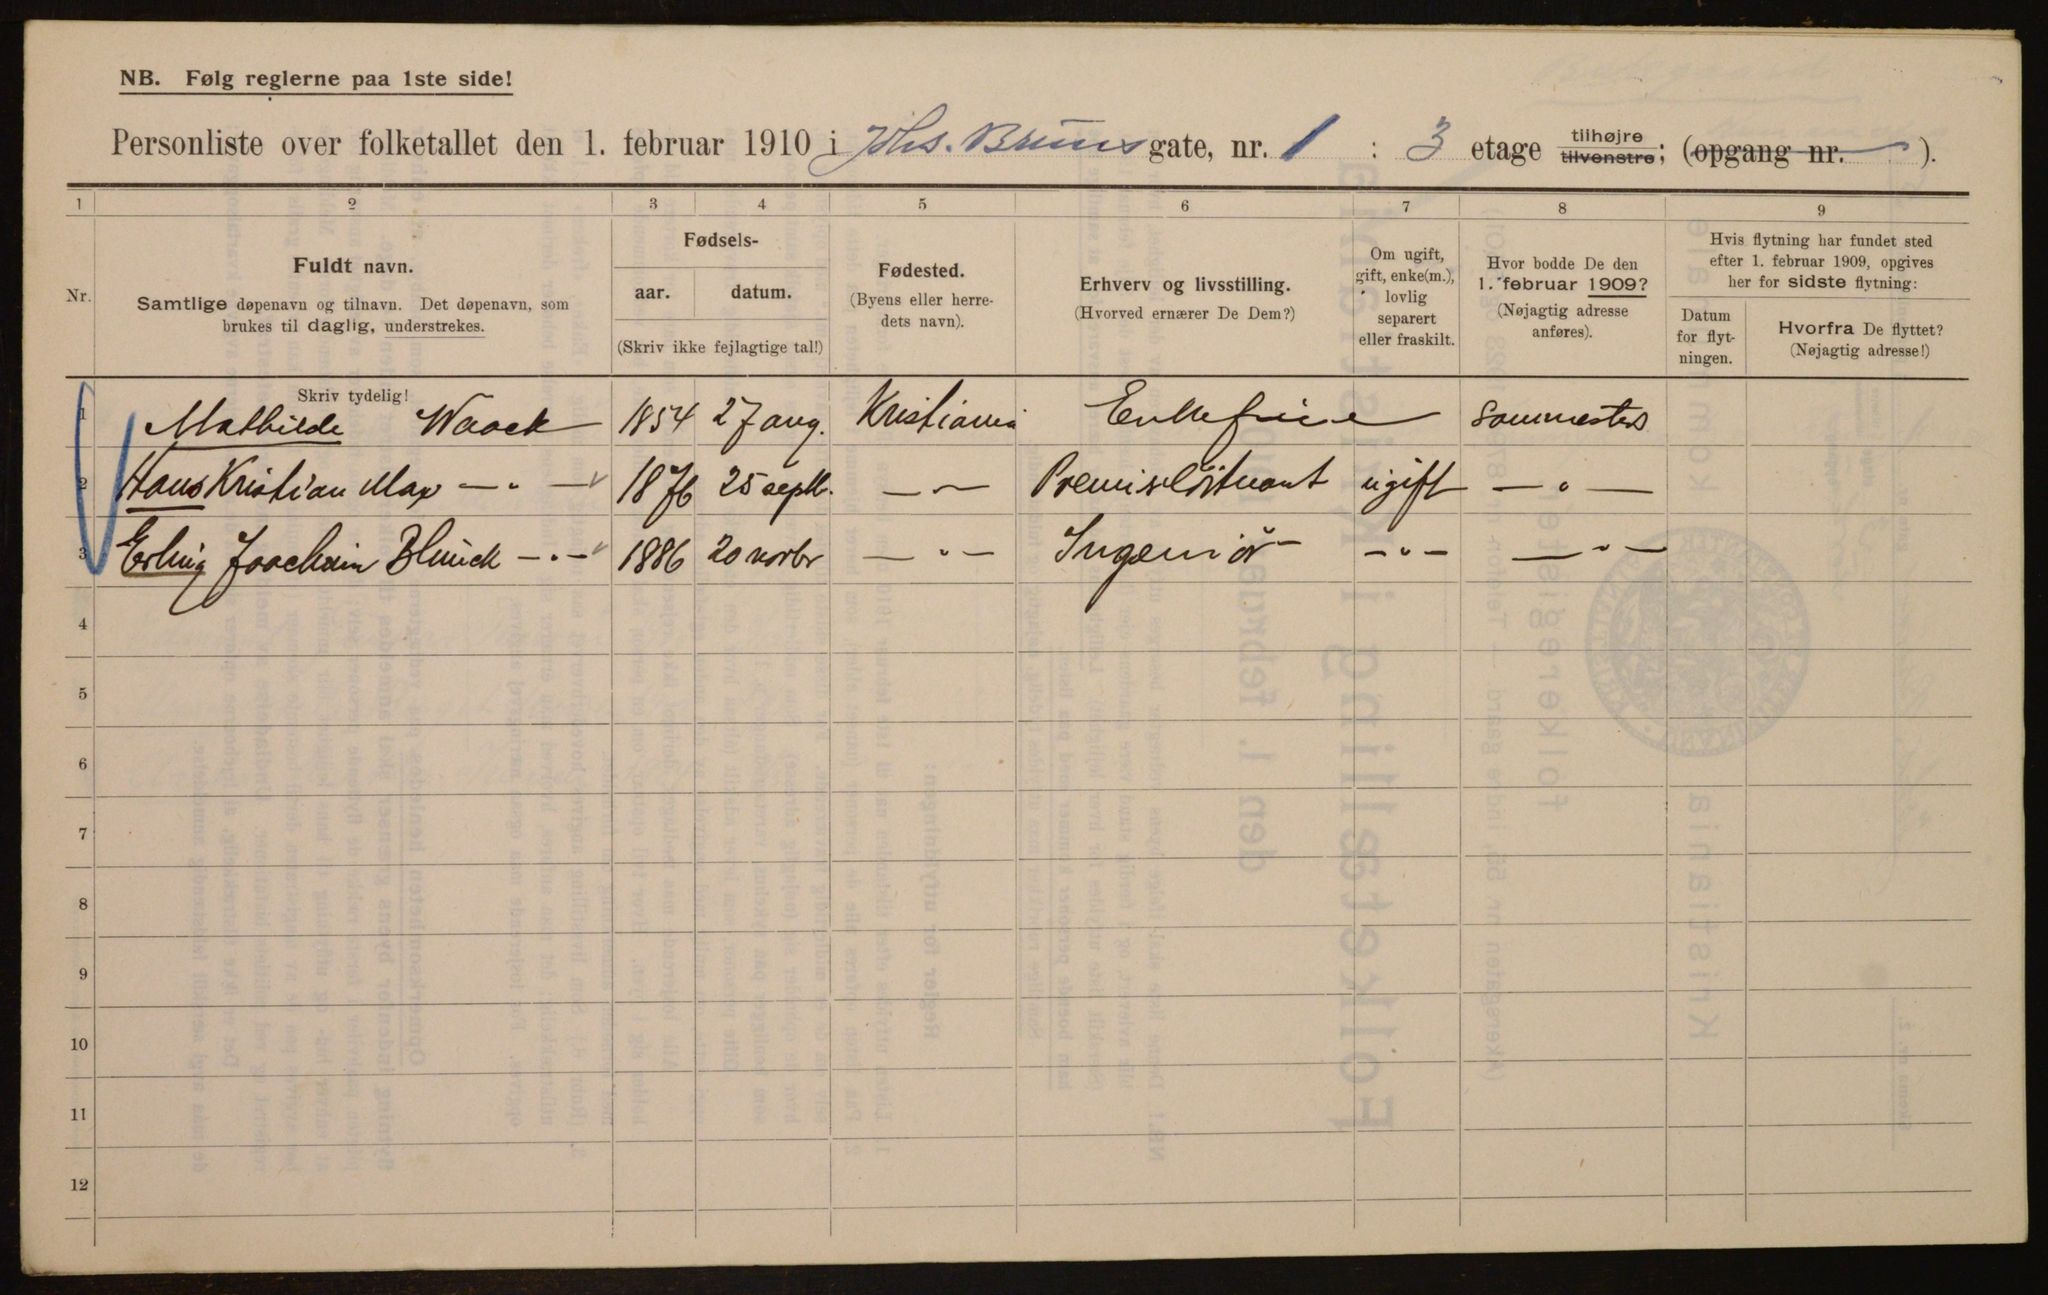 NB. Følg reglerne paa 1ste side!
Personliste over folketallet den 1. februar 1910 i Jhs. Bruns gate, nr. 1 : 3 etage tilhøjre tilvenstre; (opgang nr. ).
1 2 3 4 5 6 7 8 9
Nr.
Fuldt navn.
Samtlige døpenavn og tilnavn. Det døpenavn, som
brukes til daglig, understrekes.
Fødsels-
aar. datum.
(Skriv ikke fejlagtige tal!)
Fødested.
(Byens eller herre-
dets navn).
Erhverv og livsstilling.
(Hvorved ernærer De Dem?)
Om ugift,
gift, enke(m.),
lovlig
separert
eller fraskilt.
Hvor bodde De den
1. februar 1909?
(Nøjagtig adresse
anføres).
Hvis flytning har fundet sted
efter 1. februar 1909, opgives
her for sidste flytning:
Datum
for flyt-
ningen.
Hvorfra De flyttet?
(Nøjagtig adresse!)
Skriv tydelig!
1 Mathilde Waack 1854 27 aug. Kristiania Enkefrue
2 Hans Kristian Max — " — 1876 25 septb. — " — ugift — " —
3 Erling Joachim Blunck — " — 1886 20 novbr — " — Ingeniör — " — — " —
4
5
6
7
8
9
10
11
12